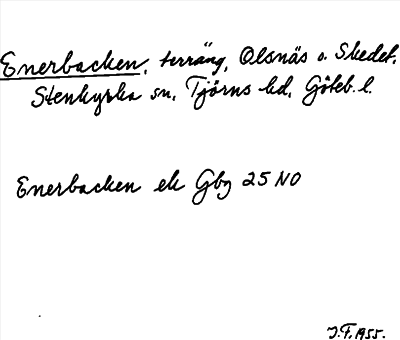 Enerbacken, terräng, Olsnäs o. Skedet,
Stenkyrka sn, Tjörns hd, Göteb. l.
Enerbacken ek Gbg 25 NO
J.F. 1955.